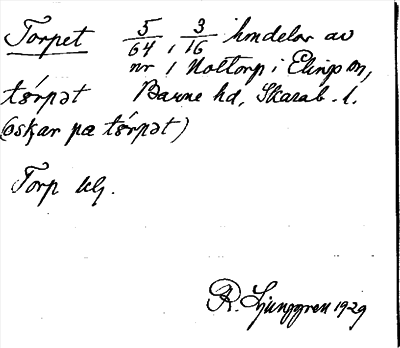 Torpet 5/64, 3/16 hmdelar av
nr 1 Noltorp i Elings sn,
tɵ́rpət Barne hd, Skarab. l.
(oskar pa tɵ́rpət)
Torp Ulj.
R. Ljunggren 1929